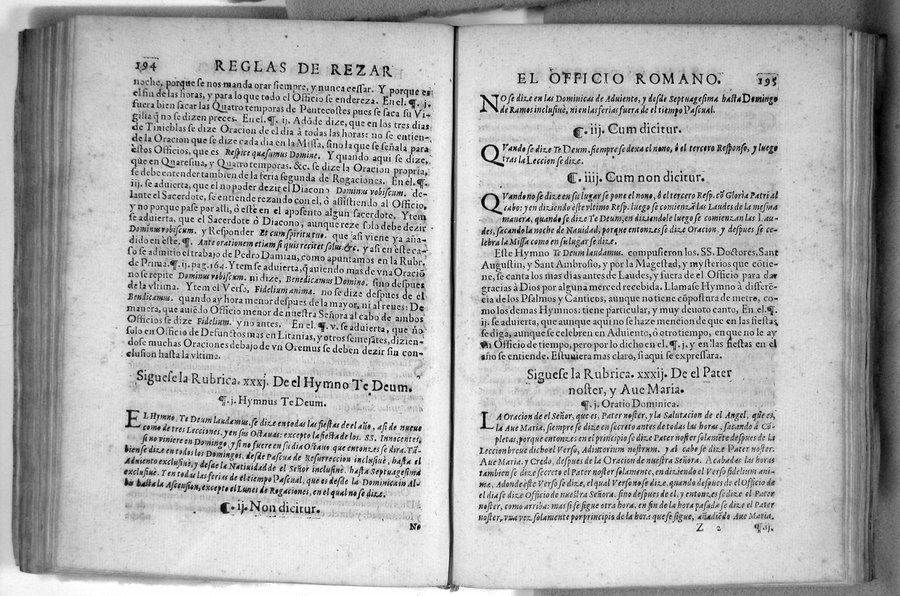 194 REGLAS DE REZAR
noche, porque se nos manda orar siempre, y nunca cessar. Y porque es
el fin de las horas, y para lo que todo el Officio se endereza. En el. ¶. j.
fuera bien sacar las Quatro temporas de Pentecostes pues se saca su Vi-
gilia q̃ no se dizen preces. En el. ¶. ij. Adõde dize, que en los tres dias
de Tinieblas se dize Oracion de el dia à todas las horas: no se entien-
de la Oracion que se dize cada dia en la Missa, sino la que se señala para
estos Officios, que es Respice quæsumus Domine. Y quando aqui se dize,
que en Quaresma, y Quatro temporas. &c. se dize la Oracion propria,
se debe entender tambien de la feria segunda de Rogaciones. En el. ¶.
iij. se aduierta, que el no poder dezir el Diacono Dominus vobiscum. de-
lante el Sacerdote, se entiende rezando con el, ò assistiendo al Officio,
y no porque pase por alli, ò estè en el aposento algun sacerdote. Ytem
se aduierta, que el Sacerdote ò Diacono, aunque reze solo debe dezir
Dominus vobiscum. y Responder Et cum spiritu tuo. que asi viene ya aña-
dido en este. ¶. Ante orationem etiam si quis recitet solus. &c. y asi en este ca-
so se admitio el trabajo de Pedro Damian, como apuntamos en la Rubr.
de Prima. ¶. ij. pag. 164. Ytem se aduierta, q̃ auiendo mas de vna Oraciõ
no se repite Dominus vobiscum. ni dize, Benedicamus Domino. sino despues
de la vltima. Ytem el Verso, Fidelium animæ. no se dize despues de el
Benedicamus. quando ay hora menor despues de la mayor, ni al reues: De
manera, que auiẽdo Officio menor de nuestra Señora al cabo de ambos
Officios se dize Fidelium. y no antes. En el. ¶. v. se aduierta, que no
solo en Officio de Defunctos mas en Litanias, y otros semejãtes, dizien-
dose muchas Oraciones debajo de vn Oremus se deben dezir sin con-
clusion hasta la vltima.
Siguese la Rubrica. xxxj. De el Hymno Te Deum.
¶. j. Hymnus Te Deum.
EL Hymno, Te Deum laudamus, se dize en todas las fiestas de el año, asi de nueue
como de tres Lecciones, y en sus Octauas: excepto la fiesta de los. SS. Innocentes,
si no viniere en Domingo, y si no fuere en su dia Octauo. que entonces se dira. Tã-
bien se dize en todos los Domingos, desde Pascua de Resurreccion inclusiuè, hasta el
Aduiento exclusiuè, y desde la Natiuidad de el Señor inclusiuè. hasta Septuagesima
exclusiuè. Y en todas las ferias de el tiempo Pascual, que es desde la Dominica in Al-
bis hasta la Ascension, excepto el Lunes de Rogaciones, en el qual no se dize.
¶. ij. Non dicitur.
No
EL OFFICIO ROMANO. 195
NO se dize en las Dominicas de Aduiento, y desde Septuagesima hasta Domingo
de Ramos inclusiuè, ni en las ferias fuera de el tiempo Pascual.
¶. iij. Cum dicitur.
QVando se dize Te Deum. siempre se dexa el nono, ò el tercero Responso, y luego
tras la Leccion se dize.
¶. iiij. Cum non dicitur.
QVando no se dize en su lugar se pone el nono, ò el tercero Resp. cõ Gloria Patri al
cabo: y en diziendo este vltimo Resp. luego se comiençan las Laudes de la mesma
manera, quando se dize Te Deum, en diziendole luego se comiençan las Lau-
des, sacando la noche de Nauidad, porque entonces se dize Oracion. y despues se ce-
lebra la Missa como en su lugar se dize.
Este Hymno Te Deum laudamus. compusieron los. SS. Doctores, Sant
Augustin, y Sant Ambrosio, y por la Magestad, y mysterios que cõtie-
ne, se canta los mas dias antes de Laudes, y fuera de el Officio para dar
gracias à Dios por alguna merced recebida. Llamase Hymno à differẽ-
cia de los Psalmos y Canticos, aunque no tiene cõpostura de metro, co-
mo los demas Hymnos: tiene particular, y muy deuoto canto, En el. ¶.
ij. se aduierta, que aunque aqui no se haze mencion de que en las fiestas
se diga, aunque se celebren en Aduiento, ò otro tiempo, en que no le ay
en Officio de tiempo, pero por lo dicho en el. ¶. j. y en las fiestas en el
año se entiende. Estuuiera mas claro, si aqui se expressara.
Siguese la Rubrica. xxxij. De el Pater
noster, y Aue Maria.
¶. j. Oratio Dominica.
LA Oracion de el Señor, que es, Pater noster, y la Salutacion de el Angel, que es,
la Aue Maria, siempre se dize en secreto antes de todas las horas, sacando à Cõ-
pletas, porque entonces, en el principio se dize Pater noster solamẽte despues de la
Leccion breue dicho el Verso, Adiutorium nostrum. y al cabo se dize Pater noster.
Aue Maria. y Credo, despues de la Oracion de nuestra Señora. Acabadas las horas
tambien se dize secreto el Pater noster solamente, en diziendo el Verso fidelium ani-
mæ. Adonde este Verso se dize, el qual Verso no se dize, quando despues de el Officio de
el dia se dize Officio de nuestra Señora. sino despues de el, y entonces se dize el Pater
noster, como arriba: mas si se sigue otra hora, en fin de la hora pasada se dize el Pater
noster, vna vez solamente por principio de la hora que se sigue, añadiẽdo Aue Maria.
Z 2 ¶. ij.